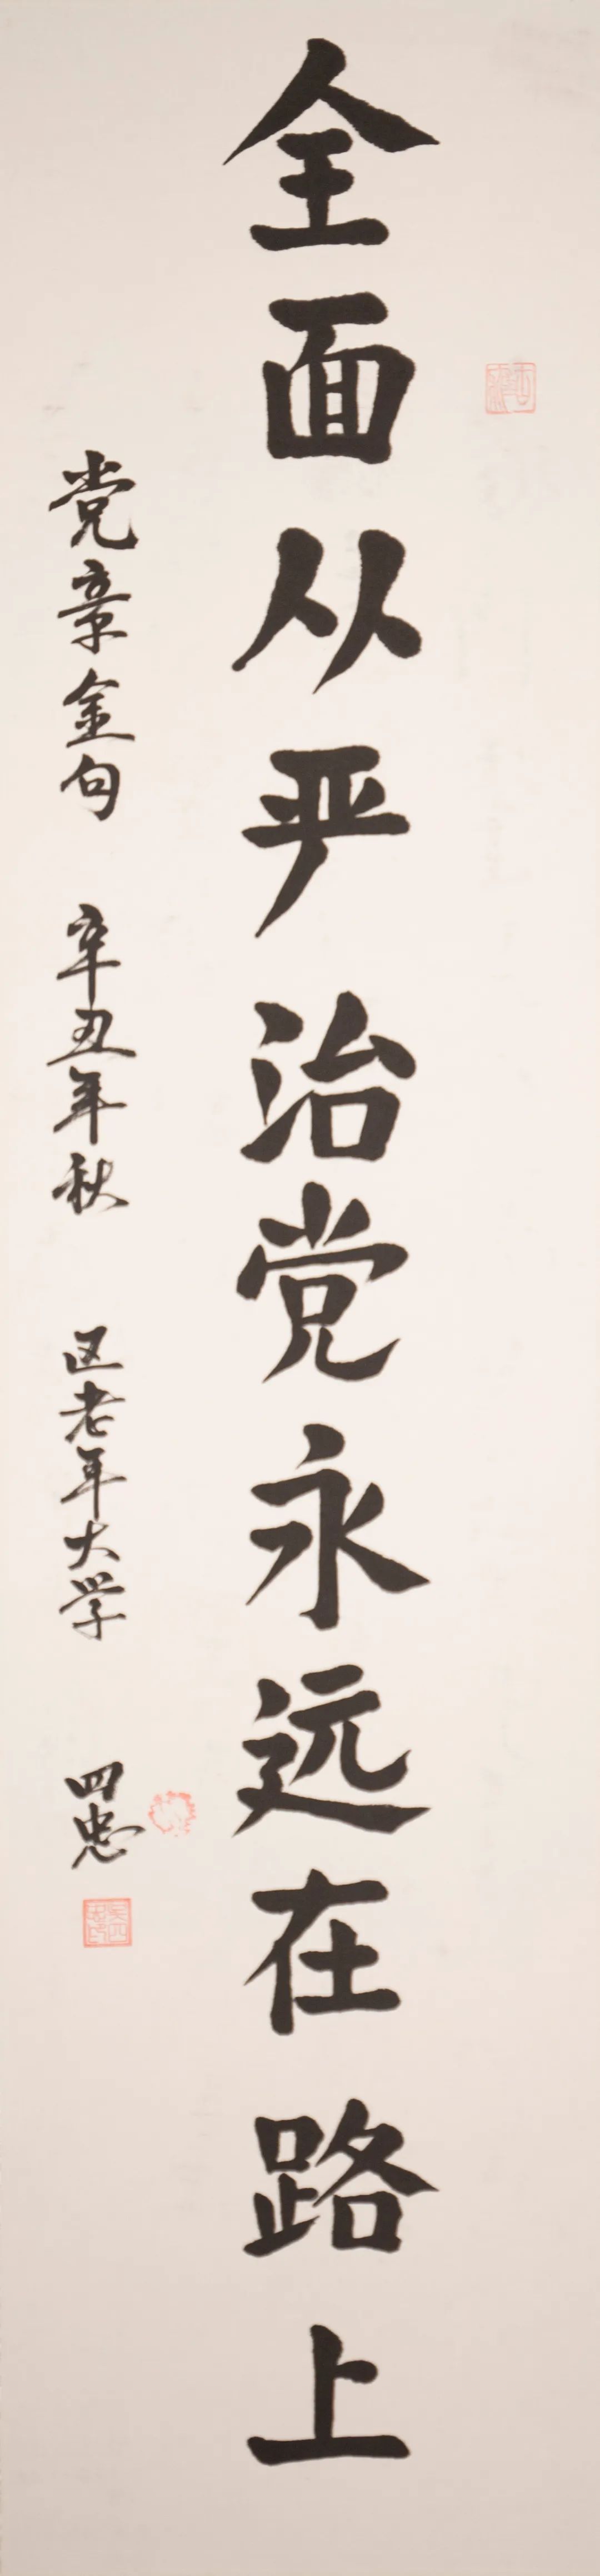 全面从严治党永远在路上
党章金句 辛丑年秋 区老年大学 四忠